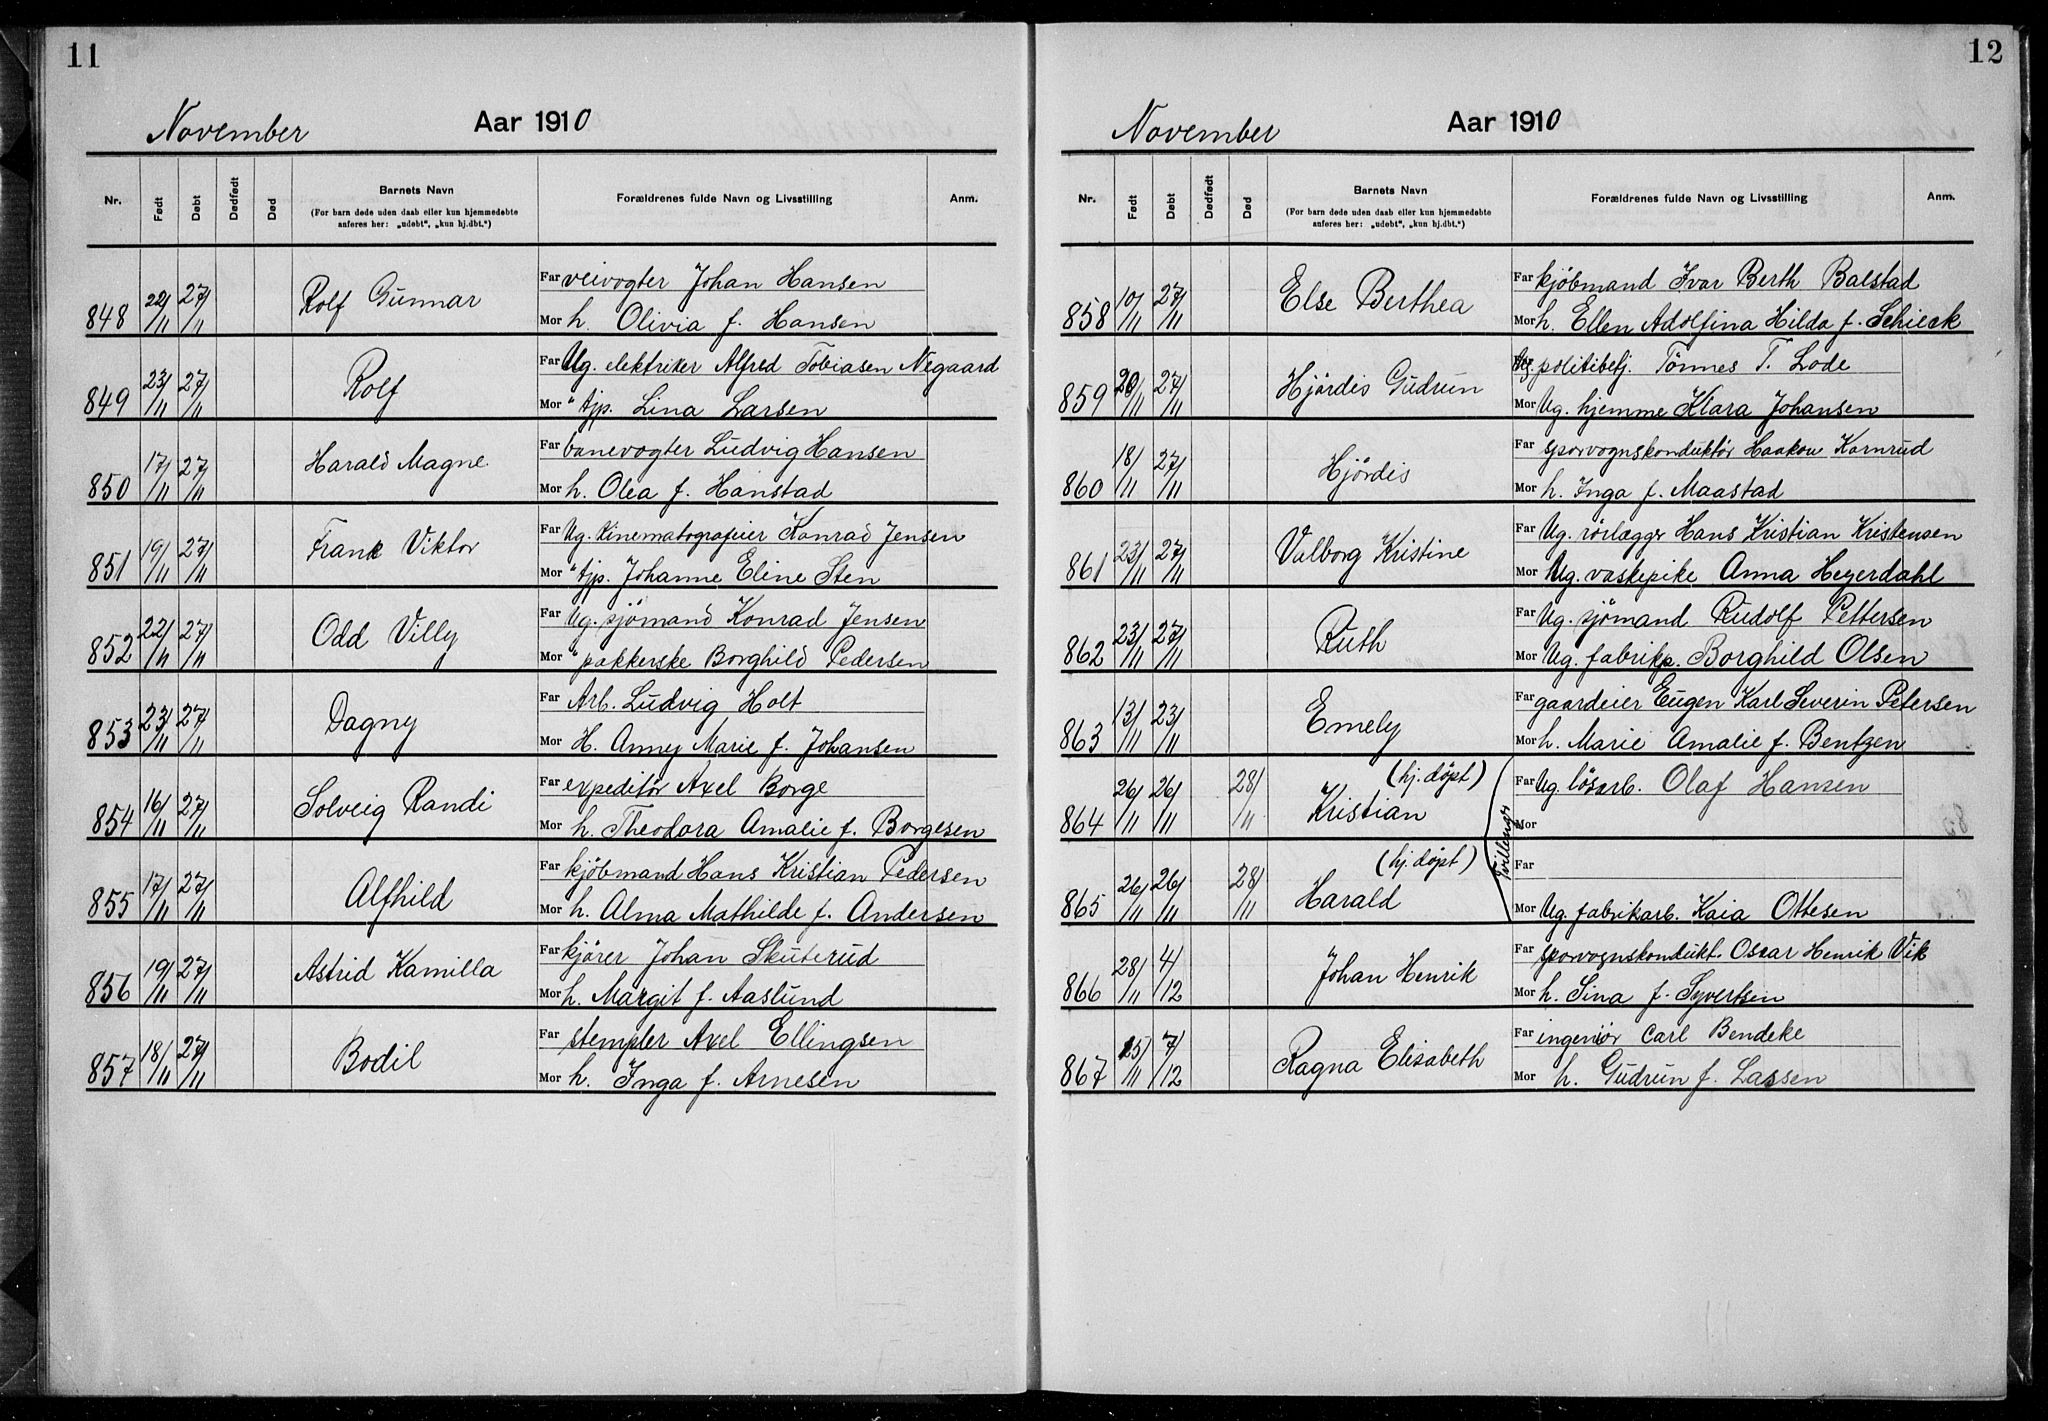 11
November Aar 1910
Nr. Født Døbt Dødfødt Død Barnets Navn Forældrenes fulde Navn og Livsstilling Anm.
(For barn døde uden daab eller kun hjemmedøbte
anføres her: „udøbt", „kun hj.dbt.")
848 22/11 27/11 Rolf Gunnar Far veivogter Johan Hansen
Mor h. Olivia f. Hansen
849 23/11 27/11 Rolf Far Ug. elektriker Alfred Tobiasen Negaard
Mor " tjp. Lina Larsen
850 17/11 27/11 Harald Magne Far banevogter Ludvig Hansen
Mor h. Olea f. Hanstad
851 19/11 27/11 Frank Viktor Far Ug. kinematografeier Konrad Jensen
Mor " tjp. Johanne Eline Sten
852 22/11 27/11 Odd Villy Far Ug. sjömand Konrad Jensen
Mor " pakkerske Borghild Pedersen
853 23/11 27/11 Dagny Far Arb. Ludvig Holt
Mor H. Anney Marie f. Johansen
854 16/11 27/11 Solveig Randi Far expeditör Axel Borge
Mor h. Theodora Amalie f. Borgesen
855 17/11 27/11 Alfhild Far kjöbmand Hans Kristian Pedersen
Mor h. Alma Mathilde f. Andersen
856 19/11 27/11 Astrid Kamilla Far kjörer Johan Skuterud
Mor h. Margit f. Aaslund
857 18/11 27/11 Bodil Far stempler Axel Ellingsen
Mor h. Inga f. Arnesen
12
November Aar 1910
Nr. Født Døbt Dødfødt Død Barnets Navn Forældrenes fulde Navn og Livsstilling Anm.
(For barn døde uden daab eller kun hjemmedøbte
anføres her: „udøbt", „kun hj.dbt.")
858 10/11 27/11 Else Berthea Far kjöbmand Ivar Berth Balstad
Mor h. Ellen Adolfina Hilda f. Schieck
859 20/11 27/11 Hjördis Gudrun Far Ug. politibetj. Tönnes T. Lode
Mor Ug. hjemme Klara Johansen
860 18/11 27/11 Hjördis Far sporvognskonduktör Haakon Kornrud
Mor h. Inga f. Maastad
861 23/11 27/11 Valborg Kristine Far Ug. rörlægger Hans Kristian Kristensen
Mor Ug. vaskepike Anna Heyerdahl
862 23/11 27/11 Ruth Far Ug. sjömand Rudolf Pettersen
Mor Ug. fabrikp. Borghild Olsen
863 13/11 23/11 Emely Far gaardeier Eugen Karl Severin Petersen
Mor h. Marie Amalie f. Bentzen
864 26/11 26/11 28/11 (hj. döpt) Kristian Tvillinger Far Ug. lösarb. Olaf Hansen
Mor
865 26/11 26/11 28/11 (hj. döpt) Harald Far
Mor Ug. fabrikarb. Kaia Ottesen
866 28/11 4/12 Johan Henrik Far sporvognskondukt. Oscar Henrik Vik
Mor h. Sina f. Syvertsen
867 25/11 7/12 Ragna Elisabeth Far ingeniör Carl Bendeke
Mor h. Gudrun f. Lassen